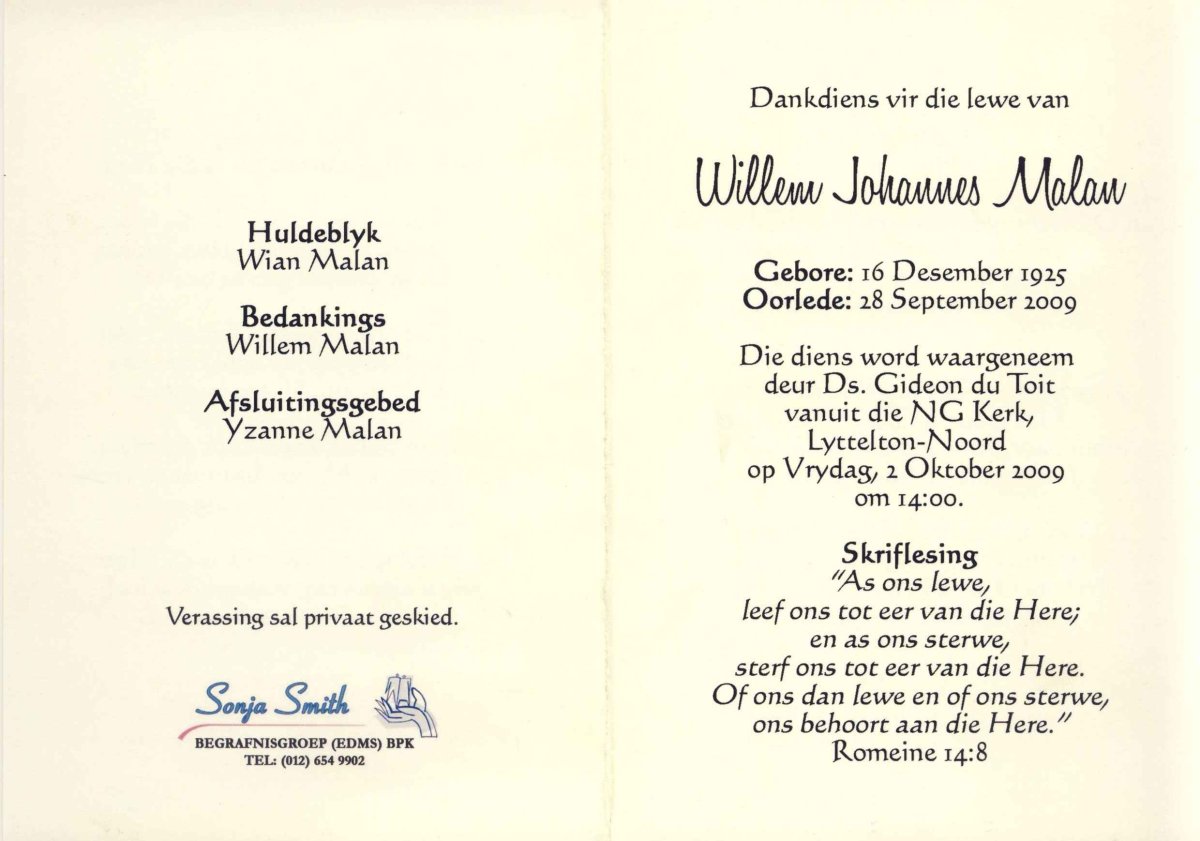 Huldeblyk
Wian Malan
Bedankings
Willem Malan
Afsluitingsgebed
Yzanne Malan
Verassing sal privaat geskied.
Sonja Smith
BEGRAFNISGROEP (EDMS) BPK
TEL: (012) 654 9902
Dankdiens vir die lewe van
Willem Johannes Malan
Gebore: 16 Desember 1925
Oorlede: 28 September 2009
Die diens word waargeneem
deur Ds. Gideon du Toit
vanuit die NG Kerk,
Lyttelton-Noord
op Vrydag, 2 Oktober 2009
om 14:00.
Skriflesing
"As ons lewe,
leef ons tot eer van die Here;
en as ons sterwe,
sterf ons tot eer van die Here.
Of ons dan lewe en of ons sterwe,
ons behoort aan die Here."
Romeine 14:8